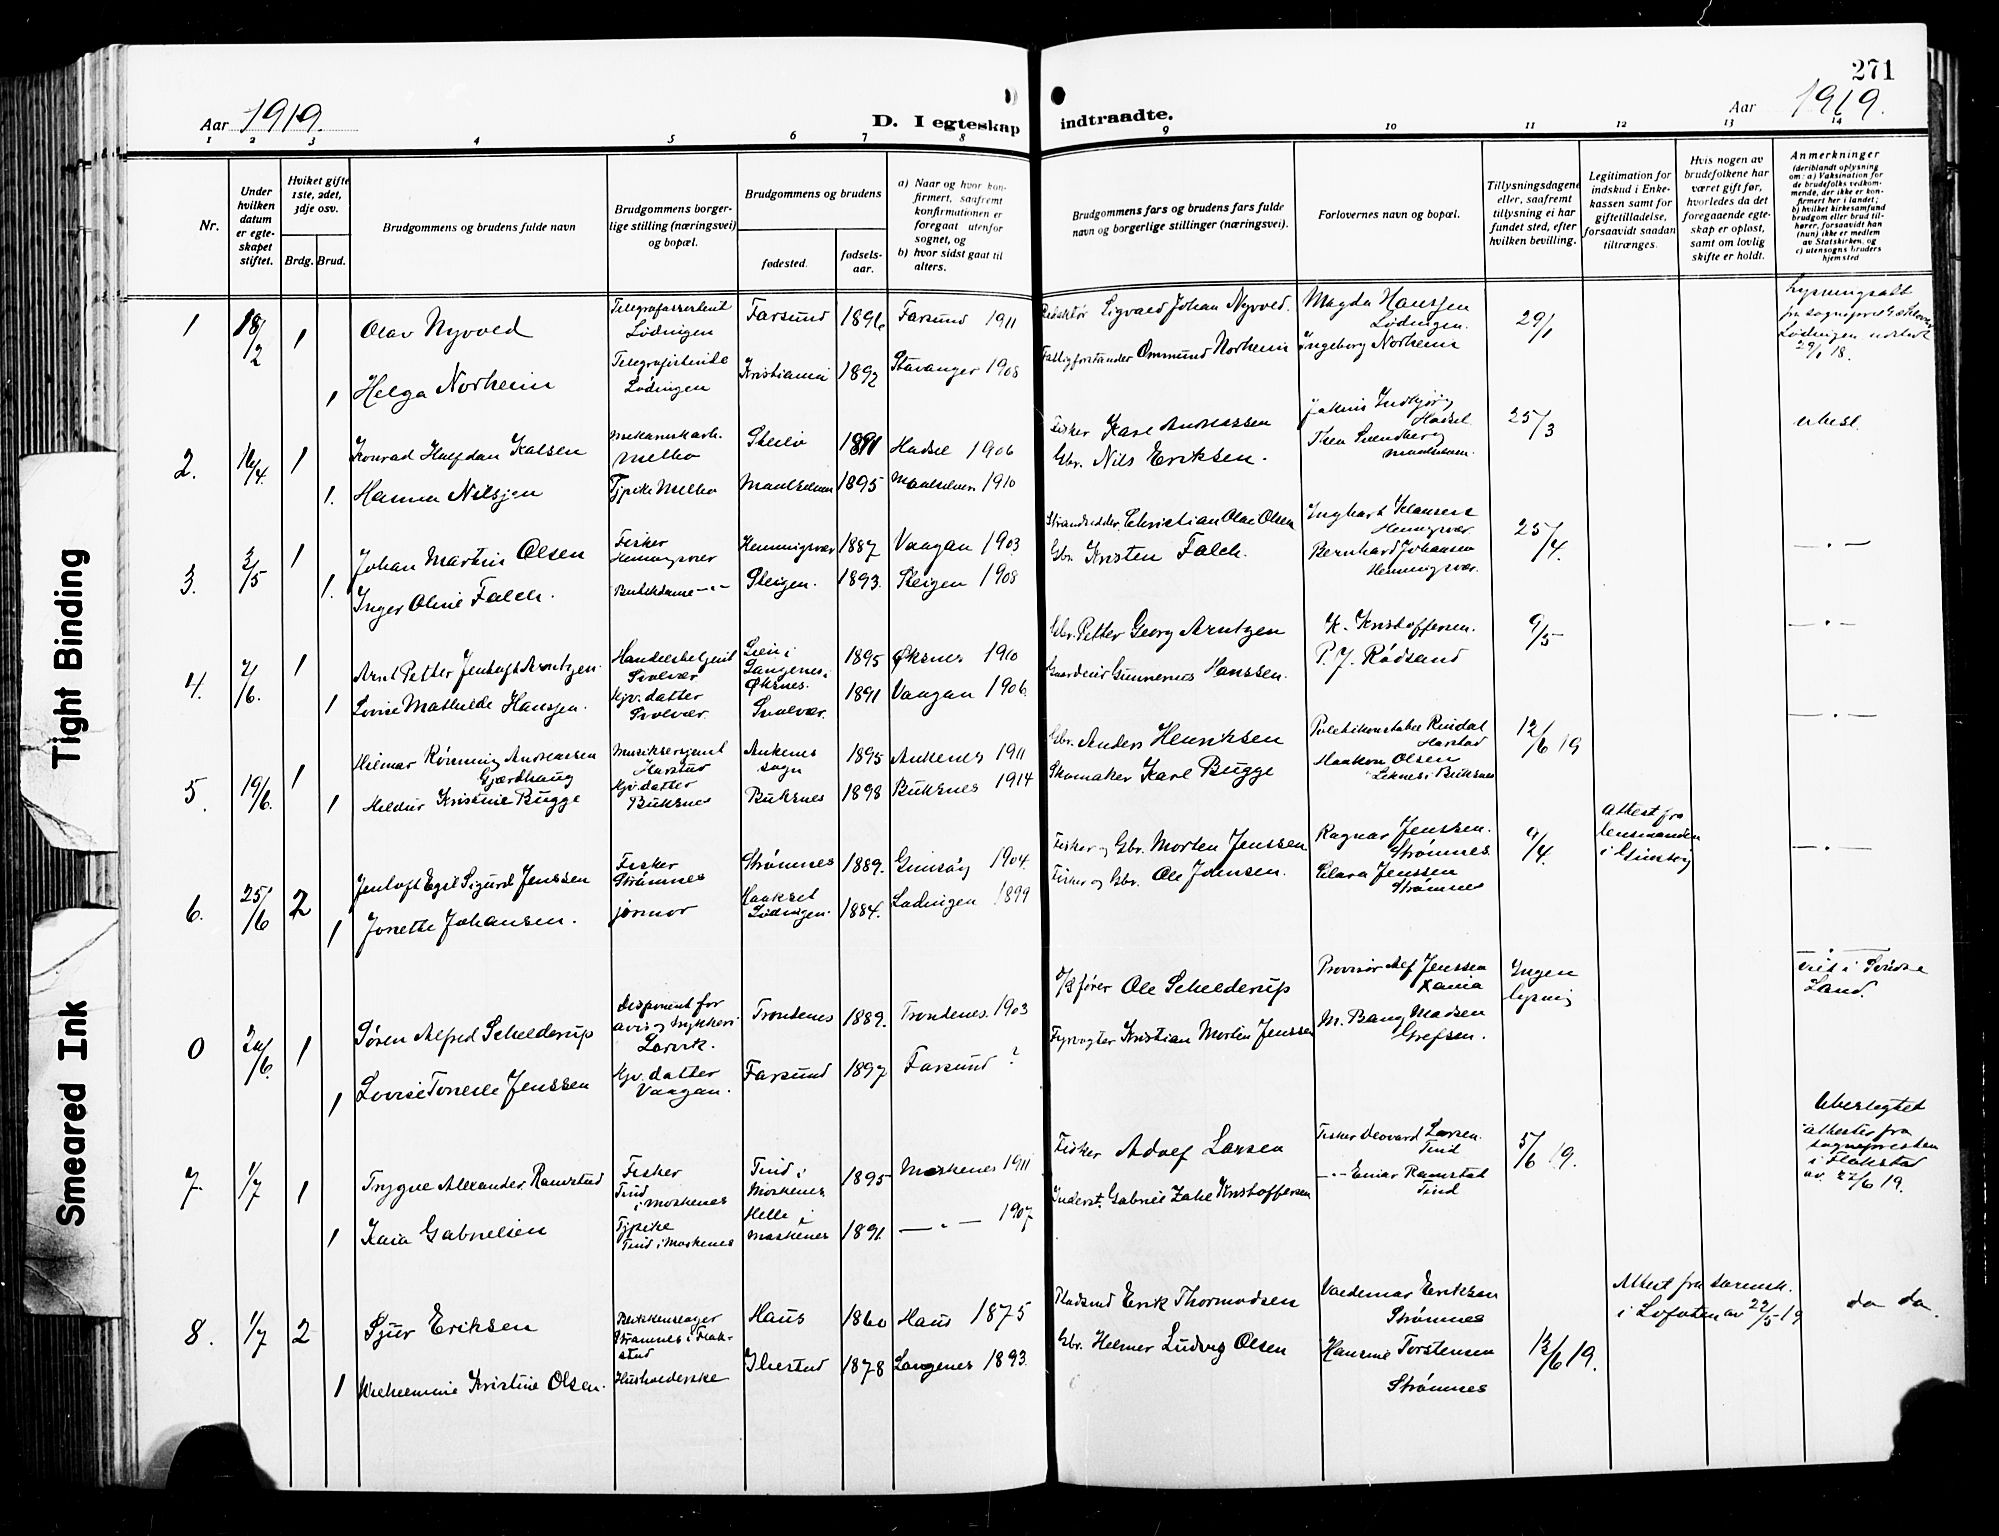 271
Aar 1919.
D. I egteskap indtraadte.
Aar 1919.
1 2 3 4 5 6 7 8 9 10 11 12 13 14
Nr.
Under hvilken datum er egteskapet stiftet.
Hviket gifte 1ste, 2det, 3dje osv.
Brdg. Brud.
Brudgommens og brudens fulde navn
Brudgommens borgerlige stilling (næringsvei) og bopæl.
Brudgommens og brudens
fødested.
fødselsaar.
a) Naar og hvor konfirmert, saafremt konfirmationen er foregaat utenfor sognet, og
b) hvor sidst gaat til alters.
Brudgommens fars og brudens fars fulde navn og borgerlige stillinger (næringsvei).
Forlovernes navn og bopæl.
Tillysningsdagene eller, saafremt tillysning ei har fundet sted, efter hvilken bevilling.
Legitimation for indskud i Enkekassen samt for giftetilladelse, forsaavidt saadan tiltrænges.
Hvis nogen av brudefolkene har været gift før, hvorledes da det foregaaende egteskap er opløst, samt om lovlig skifte er holdt.
Anmerkninger
(deriblandt oplysning om: a) Vaksination for de brudefolks vedkommende, der ikke er konfirmert her i landet;
b) hvilket kirkesamfund brudgom eller brud tilhører, forsaavidt han (hun) ikke er medlem av Statskirken, og
c) utensogns bruders hjemsted
1 18/2 1 Olav Nyvold Lødingen Farsund 1896 Farsund 1911 Sigvald Johan Nyvold. Magda Hanssen Lødingen. 29/1
1 Helga Norheim Lødingen Kristiania 1892 Stavanger 1908 Fattigforstander Ommund Norheim Ingeborg Norheim
Lødingen 29/1 18.
2. 16/4. 1 Konrad Halfdan Kalsen Melbo 1891 Hadsel 1906 Fisker Karl Andreassen Hadsel 25/3
1. Hanna Nilsen Melbo 1895 Maalselven 1910 Gbr. Nils Eriksen. Thea Svendberg
3. 3/5 1 Johan Martin Olsen Fisker Henningsvær Henningsvær 1887 Vaagan 1903 Christian Olai Olsen Henningsvær 25/4.
1. Inger Oline Falch. Steigen. 1893. Steigen 1908 Gbr. Kristen Falch. Bernhard Johansen Henningsvær.
— " —
4. 2/6. 1 Arnt Petter Jentoft Arntzen. Handelsbetjent Svolvær Øksnes. 1895 Øksnes 1910 Gbr. Petter Georg Arntzen K. Kristoffersen. 9/5
1 Lovise Mathilde Hanssen. Gjv. datter Svolvær. Svolvær. 1891 Vaagan 1906. Hanssen. P. J. Rødsand
— " —
5. 19/6. 1 Hilmar Rønning Andreassen Gjærdhaug Ankenes sogn 1895 Ankenes 1911 Gbr. Anders Henriksen Politikonstabel Rindal Harstad 12/6 19
1 Hildur Kristine Bugge Gjv. datter Buksnes Buksnes 1898 Buksnes 1914 Skomaker Karl Bugge Haakon Olsen Leknes i Buksnes
— " —
6. 25/6 2 Jentoft Egil Sigurd Jenssen Fisker Strømnes Strømnes 1889. Gimsøy 1904. Fisker og Gbr. Morten Jenssen Ragnar Jenssen. Strømnes. 9/4. Attest fra lensmanden i Gimsøy
1 Jonette Johansen. jormor Lødingen. 1884. Lødingen 1899 Fisker og Gbr. Ole Johnsen. Clara Jenssen Strømnes
— " —
0 24/6. 1 Søren Alfred Schelderup Disponent for avis og trykkeri Larvik. Trondenes 1889. Trondenes. 1903 Ole Schelderup Provisor Alf Jenssen Ingen lysning
1 Lovise Tonelle Jenssen Gjv. datter Vaagan. Farsund 1897 Farsund ? Fyrvogter Kristian Morten Jenssen M. Bang Madsen Grefsen.
— " —
7. 1/7 1 Trygve Alexander Ramstad Fisker Tind i Moskenes Tind i Moskenes 1895 Moskenes 1911 Fisker Adolf Larsen Fisker Larsen. Tind 5/6 19.
1 Kaia Gabrielsen Tind i Moskenes Helle i Moskenes 1891. — " — 1907 Kristoffersen — " — Einar Ramstad Tind
attester fra sognepresten i Flakstad av 22/6 19.
8. 1/7 2 Sjur Eriksen Haus 1860 Haus 1875 Pladsmd Erik Thormodsen Valdemar Eriksen Strømnes 13/6 19. Attest fra i Lofoten av 22/5 19 da da.
1 Wilhelmine Kristine Olsen. Husholderske Ibestad 1878 Langenes 1893. Gbr. Helmer Ludvig Olsen Hansine Torstensen Strømnes
Tight Binding
Smeared Ink